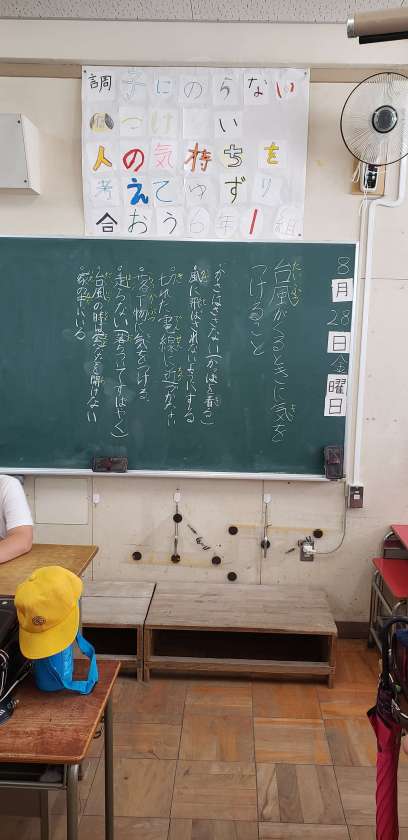 調子にのらない
つけ い
人の気持ちを
考えてゆずり
合おう6年1組
8月28日金曜日
台風がくるときに気を
つけること
・かさはささない(かっぱを着る)
・風に飛ばされないようにする
・切れた電線に近づかない
物に気をつける。
・走らない(落ちついてすばやく)
・台風の時は窓などを開けない
・家の中にいる